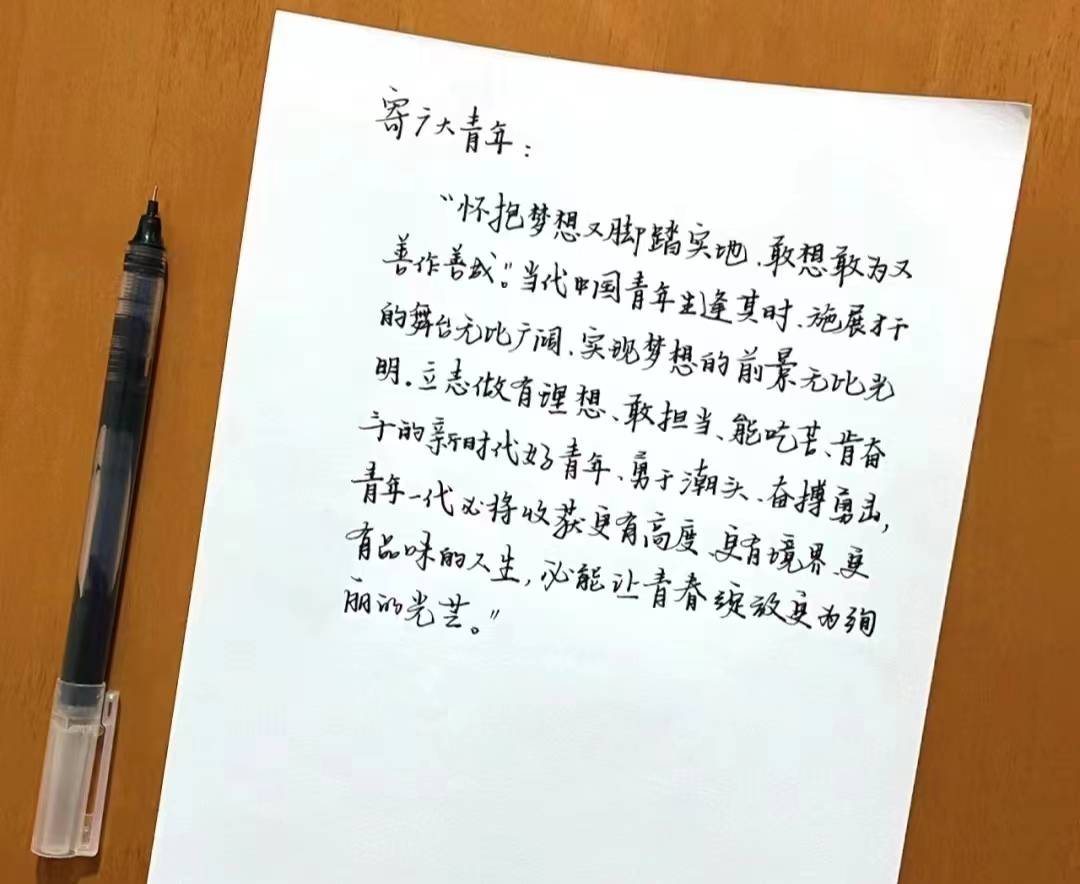 寄广大青年：
“怀抱梦想又脚踏实地、敢想敢为又
善作善成”。当代中国青年生逢其时、施展才干
的舞台无比广阔、实现梦想的前景无比光
明。立志做有理想、敢担当、能吃苦、肯奋
斗的新时代好青年、勇于潮头、奋搏勇击，
青年一代必将收获更有高度、更有境界、更
有品味的人生，必能让青春绽放更为绚
丽的光芒。”